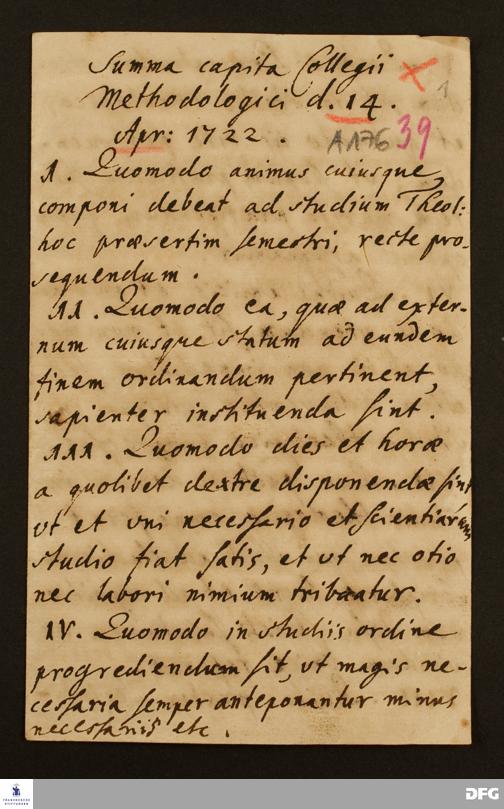 Summa capita Collegii
Methodologici d. 14.
Apr: 1722.
A176 39
1
I. Quomodo animus cuiusque,
componi debeat ad studium Theol:
hoc præsertim semestri, recte pro-
sequendum.
II. Quomodo ea, quæ ad exter-
num cuiusque statum ad eundem
finem ordinandum pertinent,
sapienter instituenda sint.
III. Quomodo dies et horæ
a quolibet dextre disponendæ sint
vt et vni necessario et scientiarum
studio fiat satis, et vt nec otio
nec labori nimium tribuatur.
IV. Quomodo in studiis ordine
progrediendum sit, vt magis ne-
cessaria semper anteponantur minus
necessariis etc.
FRANCKESCHE
STIFTUNGEN
DFG